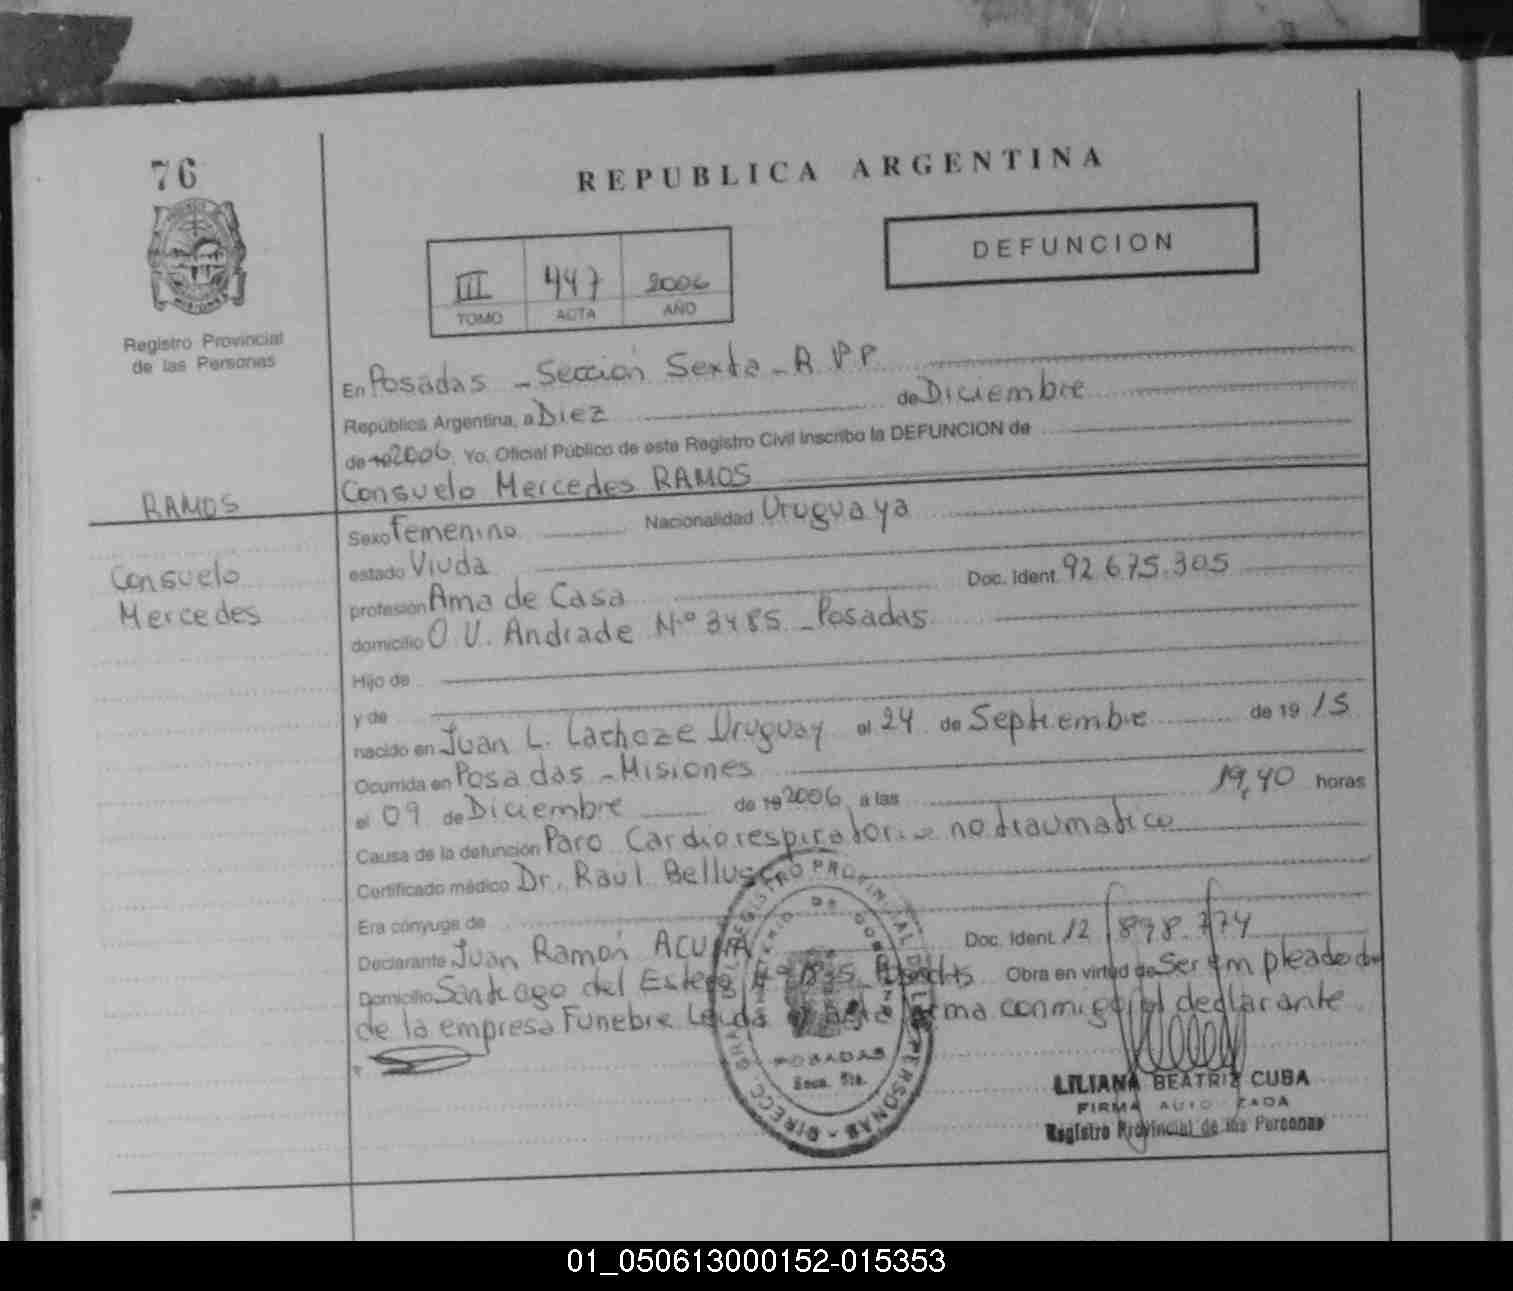 76
REPUBLICA ARGENTINA
DEFUNCION
III 447 2006
TOMO ACTA AÑO
Registro Provincial
de las Personas
En Posadas - Sección Sexta - R.P.P.
República Argentina, a Diez de Diciembre
de 19 2006 Yo, Oficial Público de este Registro Civil inscribo la DEFUNCION de
Consuelo Mercedes RAMOS
RAMOS
Consuelo
Mercedes
Sexo Femenino Nacionalidad Uruguaya
estado Viuda
profesión Ama de Casa Doc. Ident. 92.675.305
domicilio O.V. Andrade Nº 3485 - Posadas
Hijo de
y de
nacido en Juan L. Lachoze Uruguay el 24 de Septiembre de 1915
Ocurrida en Posadas - Misiones
el 09 de Diciembre de 19 2006 a las 19,40 horas
Causa de la defunción Paro Cardiorespiratorio no traumatico
Certificado médico Dr. Raúl Bellusc
Era cónyuge de
Declarante Juan Ramón ACUÑA Doc. Ident. 12.898.774
Domicilio Santiago del Estero Posadas Obra en virtud de Ser empleado
de la empresa Funebre Leida el acta firma conmigo el declarante
POSADAS
Secc. 6ta.
LILIANA BEATRIZ CUBA
FIRMA AUTORIZADA
Registro Provincial de las Personas
01_050613000152-015353